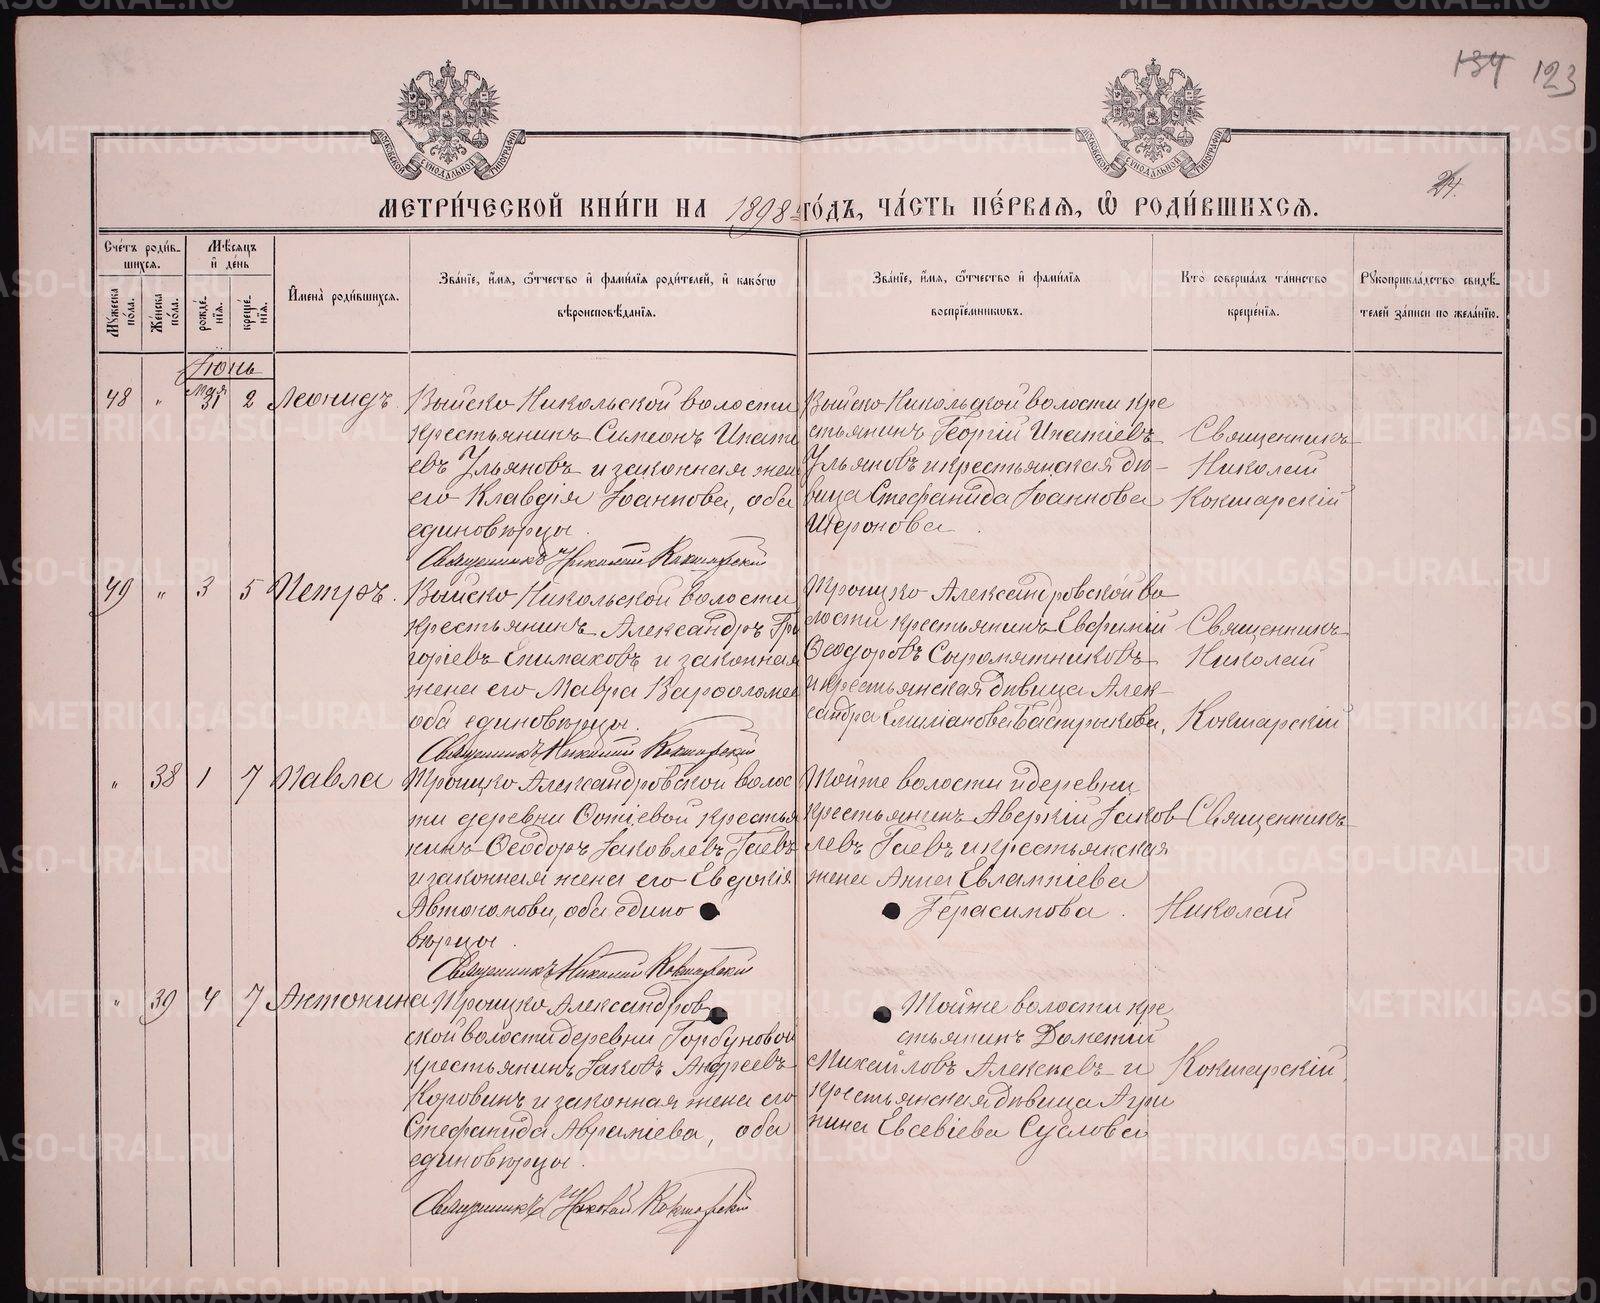 134 123
24.
МЕТРИ́ЧЕСКОЙ КНИ́ГИ НА 1898 ГО́ДЪ, ЧА́СТЬ ПЕ́РВАЯ, Ѽ РОДИ́ВШИХСЯ.
Сче́тъ роди́в-
шихся.
Мꙋжеска по́ла.
Же́нска по́ла.
Мѣ́сяцъ и҆ де́нь
рожде́нїя.
креще́нїя.
И҆мена̀ роди́вшихся.
Зва́нїе, и҆́мя, ѻ҆́тчество и҆ фами́лїя роди́телей, и҆ како́гѡ
вѣроисповѣ́данїя.
Зва́нїе, и҆́мя, ѻ҆́тчество и҆ фами́лїя
воспрїе́мникѡвъ.
Кто̀ соверша́лъ та́инство
креще́нїя.
Рꙋкоприкла́дство свидѣ́-
телей за́писи по жела́нїю.
Іюнь
48 " Мая 31 2 Леонидъ.
Выйско Никольской волости
крестьянинъ Симеонъ Ипати
евъ Ульяновъ и законная жена
его Клавдія Іоаннова, оба
единовѣрцы.
Священникъ Николай Кокшарскій
Выйско Никольской волости кре
стьянинъ Георгій Ипатіевъ
Ульяновъ и крестьянская дѣ-
вица Стефанида Іоаннова
Шеронова.
Священникъ
Николай
Кокшарскій
49 " 3 5 Петръ.
Выйско Никольской волости
крестьянинъ Александръ Гри
горіевъ Епимаховъ и законная
жена его Мавра Варфоломе
оба единовѣрцы.
Священникъ Николай Кокшарскій
Троицко Александровской во
лости крестьянинъ Евфимій
Ѳеодоровъ Сыромятниковъ
и крестьянская дѣвица Алек-
сандра Емиліанова Бастрыкова,
Священникъ
Николай
Кокшарскій
" 38 1 7 Павла
Троицко Александровской волос
ти деревни Фотіевой крестья
нинъ Ѳеодоръ Іаковлевъ Гаевъ
и законная жена его Евдокія
Автономова, оба едино
вѣрцы.
Священникъ Николай Кокшарскій
Той же волости и деревни
крестьянинъ Аверкій Іаков
левъ Гаевъ и крестьянская
жена Анна Евлампіева
Герасимова.
Священникъ
Николай
" 39 4 7 Антонина
Троицко Александров
ской волости деревни Горбуновой
крестьянинъ Іаковъ Андреевъ
Коровинъ и законная жена его
Стефанида Авраміева, оба
единовѣрцы.
Священникъ Николай Кокшарскій
Той же волости кре
стьянинъ Дометій
Михайловъ Алексѣевъ и
крестьянская дѣвица Агри
пина Евсевіева Суслова
Кокшарскій.
METRIKI.GASO-URAL.RU